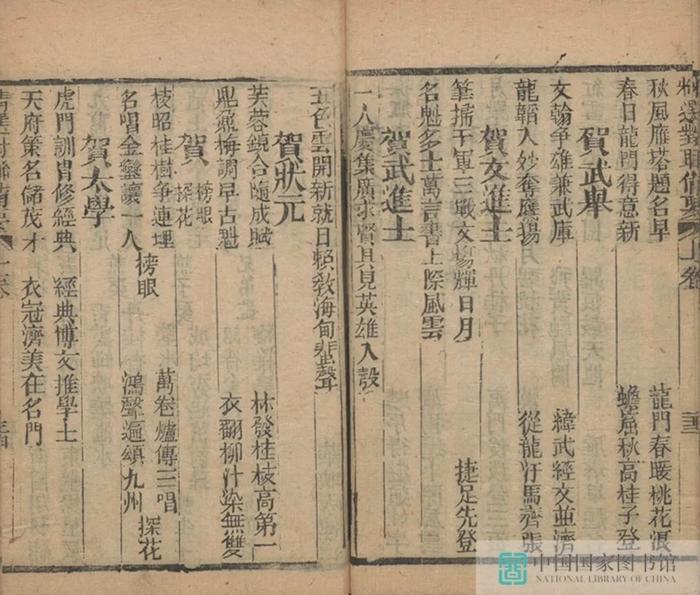 秋風雁塔題名早　龍門春暖桃花浪
春日龍門得意新　蟾窟秋高桂子登
賀武舉
文翰爭雄兼武庫　緯武經文並濟
龍韜入妙奪鷹揚　從龍汗馬齊張
賀文進士
筆掃千軍三戰文場輝日月　捷足先登
名魁多士萬言書上際風雲
賀武進士
一人慶集廣求賢具見英雄入彀
五色雲開新就日賴敎海甸蜚聲
賀狀元
芙蓉鏡合隨成賦　林發桂枝高第一
鼎鼐梅調早占魁　衣翻柳汁染無雙
賀 榜眼 探花
枝昭桂樹爭連理 榜眼　萬卷爐傳三唱
名唱金鑾讓一人　鴻聲遍頌九州 探花
賀太學
虎門訓冑修經典　經典博文推學士
天府策名儲茂才　衣冠濟美在名門
中国国家图书馆
NATIONAL LIBRARY OF CHINA